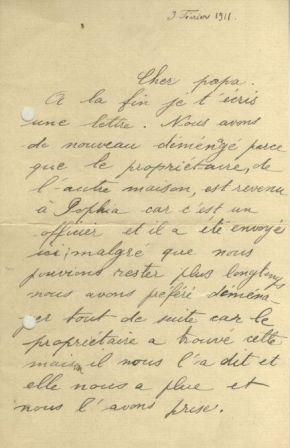 3 Février 1911.
Cher papa.
A la fin je t'écris
une lettre. Nous avons
de nouveau déménagé parce
que le propriétaire, de
l'autre maison, est revenu
à Sophia car c'est un
officier et il a été envoyé
ici; malgré que nous
pouvions rester plus longtemps
nous avons préféré déména-
ger tout de suite car le
propriétaire a trouvé cette
maison il nous l'a dit et
elle nous a plue et
nous l'avons prise.